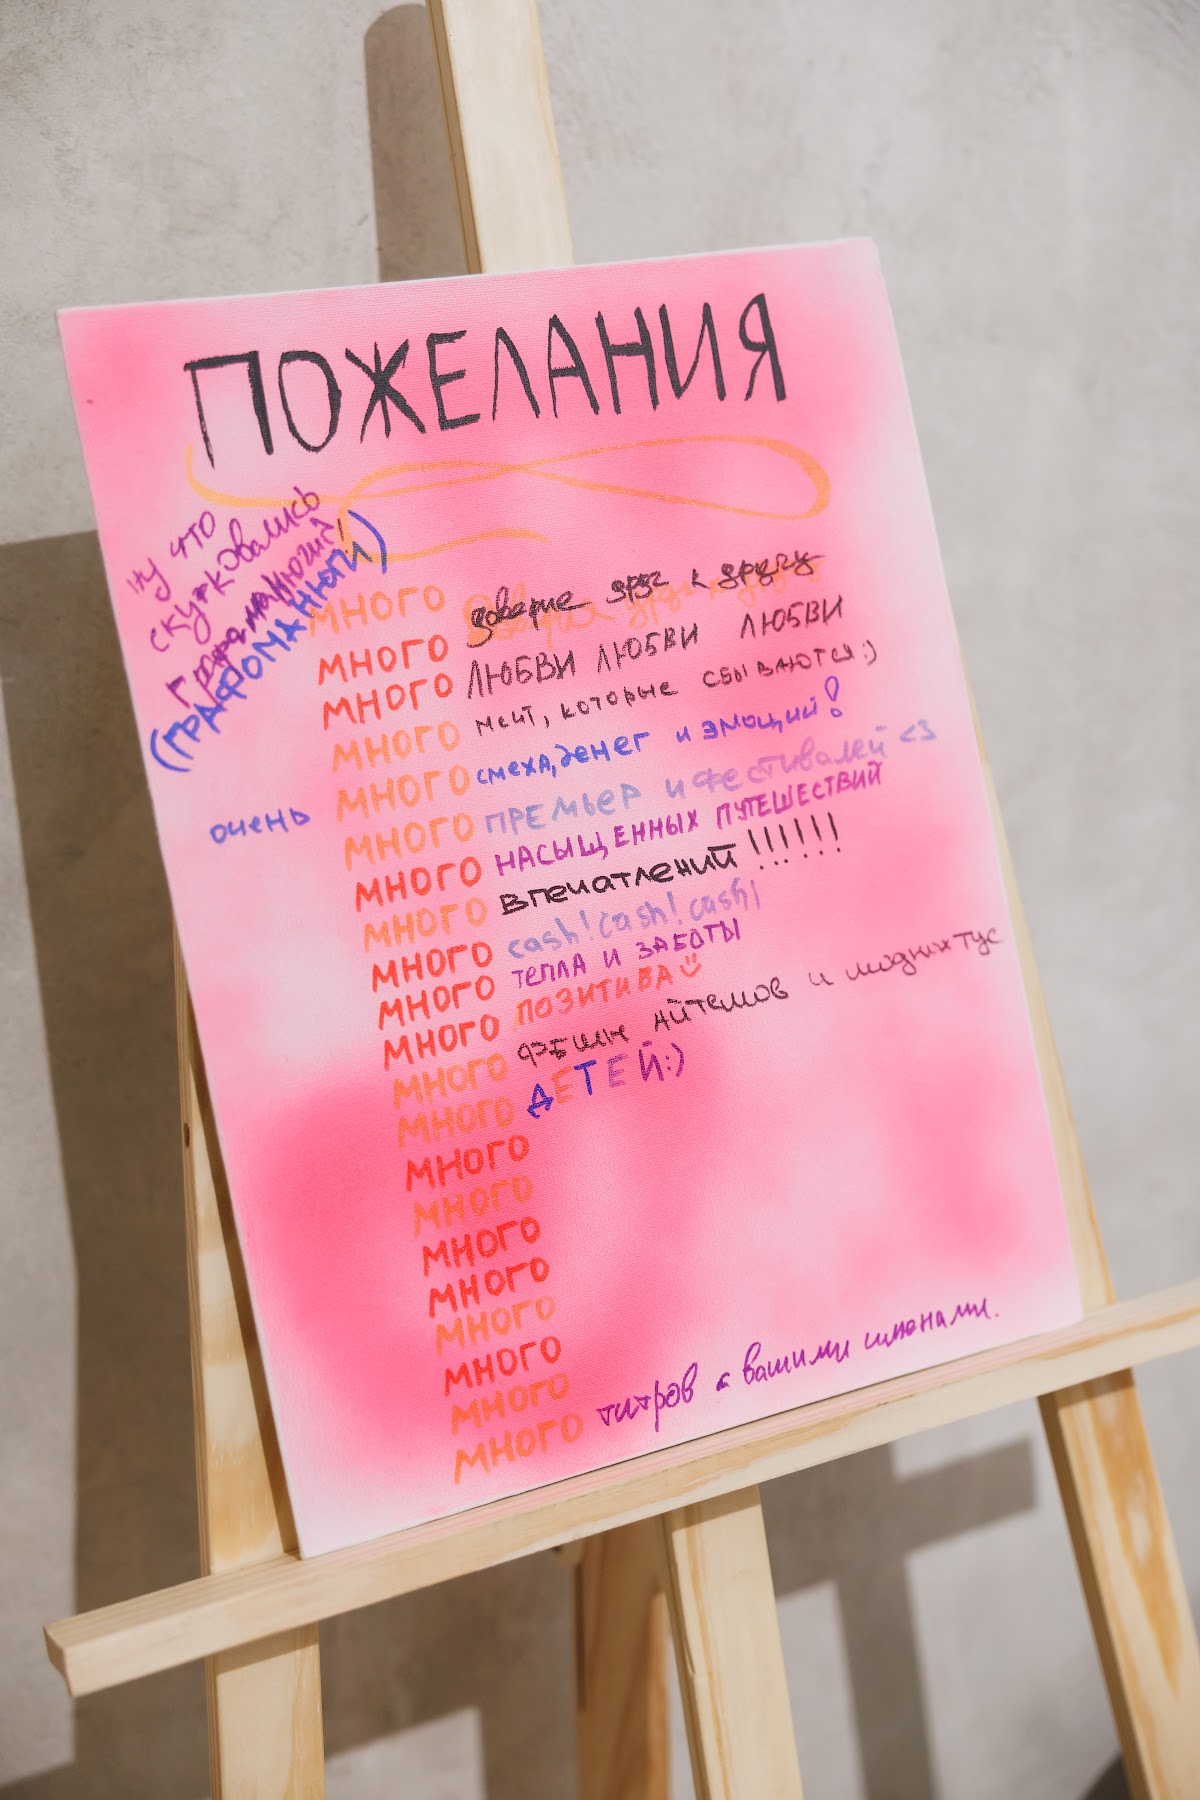 ПОЖЕЛАНИЯ
ну что
скужковались
(ГРАФОМАНЮГИ)
МНОГО
МНОГО доверие друг к другу
МНОГО ЛЮБВИ ЛЮБВИ ЛЮБВИ
МНОГО мечт, которые сбываются:)
очень МНОГО смеха, денег и эмоций!
МНОГО ПРЕМЬЕР и фестивалей <3
МНОГО НАСЫЩЕННЫХ ПУТЕШЕСТВИЙ
МНОГО впечатлений!!!!!!
МНОГО cash! cash! cash!
МНОГО ТЕПЛА И ЗАБОТЫ
МНОГО ПОЗИТИВА
МНОГО фэшн айтемов и модных тус
МНОГО ДЕТЕЙ:)
МНОГО
МНОГО
МНОГО
МНОГО
МНОГО
МНОГО
МНОГО
МНОГО титров с вашими именами.